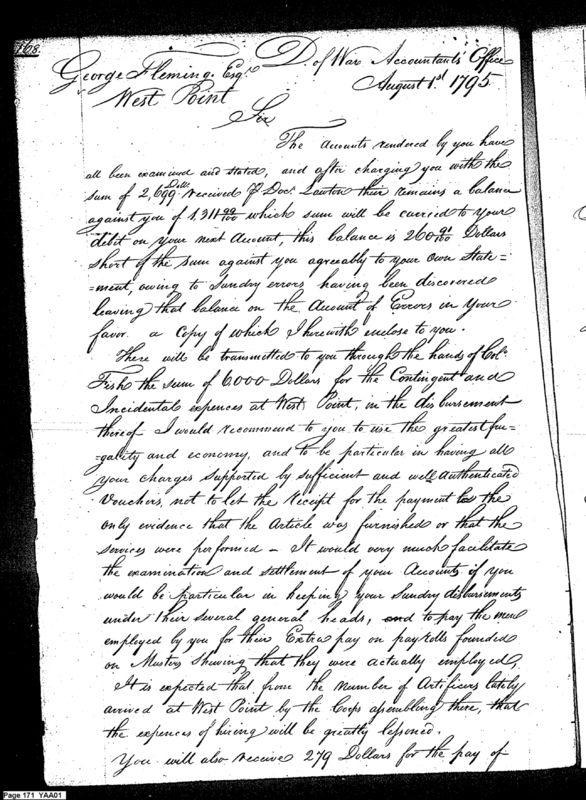 168.
D of War Accountants Office
George Fleming. Esqr. August 1st. 1795
West Point
Sir
The Accounts rendered by you have
all been examined and stated, and after charging you with the
sum of 2,699 Dolls. received Doct. Lawton their remains a balance
against you of 1.311 99/100 which sum will be carried to your
debit on your next Account, this balance is 260 91/100 Dollars
short of the sum against you agreably to your own State=
=ment, owing to Sundry errors having been discovered
leaving that balance on the Account of Errors in Your
favor. a Copy of which I herewith enclose to you.
There will be transmitted to you through the hands of Colo.
Fish the sum of 6.000 Dollars for the Contingent and
Incidental expences at West Point, in the disbursement
thereof I would recommend to you to use the greatest fru=
=gality and economy, and to be particular in having all
your charges supported by sufficient and well Authenticated
Vouchers, not to let the receipt for the payment be the
only evidence that the Article was furnished or that the
services were performed - It would very much facilitate
the examination and settlement of your Accounts if you
would be particular in keeping your Sundry disbursements
under their several general heads, and to pay the men
employed by you for their Extra pay on payrolls founded
on Musters shewing that they were actually employed.
It is expected that from the number of Artificers lately
arrived at West Point by the Corps assembling there, that
the expences of hireing will be greatly lessoned.
You will also receive 279 Dollars for the pay of
Page 171 YAA01